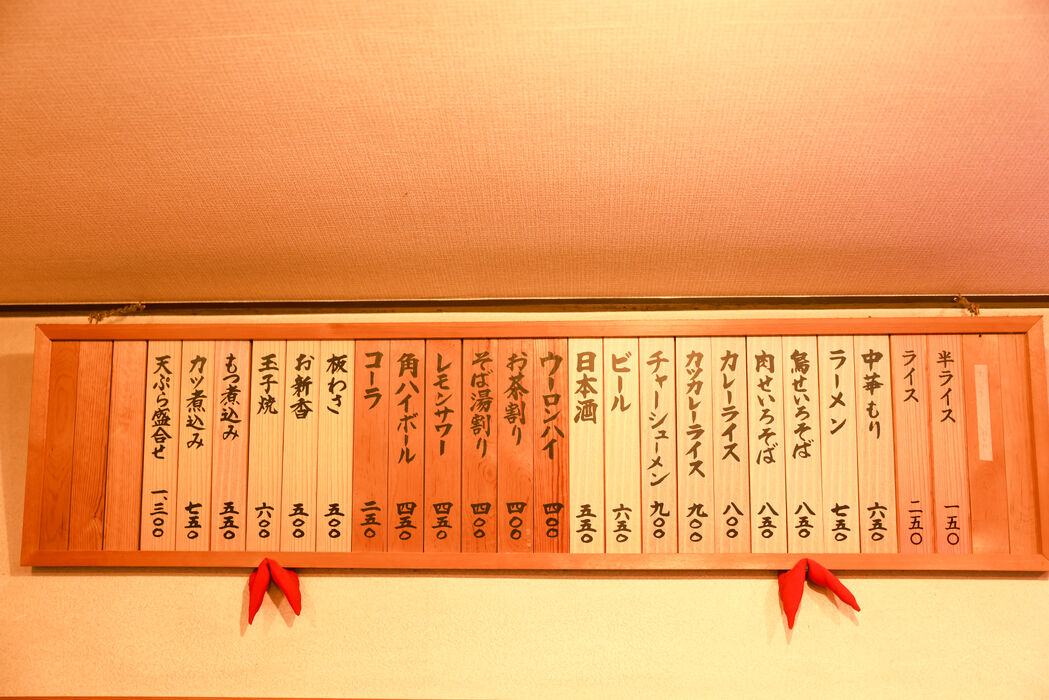 半ライス 一五〇
ライス 二五〇
中華もり 六五〇
ラーメン 七五〇
鳥せいろそば 八五〇
肉せいろそば 八五〇
カレーライス 八〇〇
カツカレーライス 九〇〇
チャーシューメン 九〇〇
ビール 六五〇
日本酒 五五〇
ウーロンハイ 四〇〇
お茶割り 四〇〇
そば湯割り 四〇〇
レモンサワー 四五〇
角ハイボール 四五〇
コーラ 二五〇
板わさ 五〇〇
お新香 五〇〇
玉子焼 六〇〇
もつ煮込み 五五〇
カツ煮込み 七五〇
天ぷら盛合せ 一、三〇〇